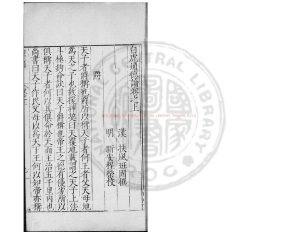 白虎通德論卷之上
漢 扶風班固撰
明 新安程榮校
爵
天子者爵稱也爵所以稱天子者何王者父天母地
為天之子也故援神契曰天覆地載謂之天子上法
斗極鉤命決曰天子爵稱也帝王之德有優劣所以
俱稱天子者何以其俱命於天而王治五千里內也
尚書曰天子作民父母以為天下王何以知帝亦稱
CENTRAL LIBRARY